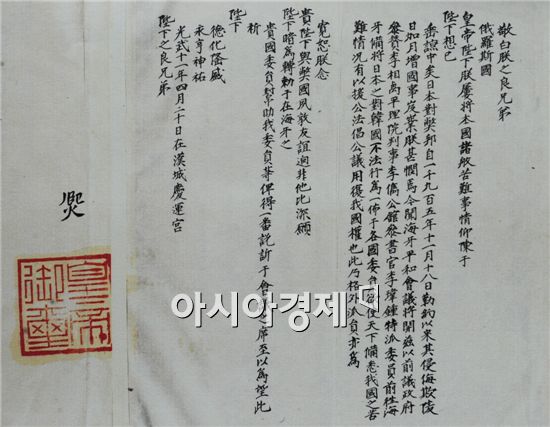 敬白朕之良兄弟
俄羅斯國
皇帝陛下朕屢將本國諸般苦難事情仰陳于
陛下想已
垂諒中矣日本對弊邦自一千九百五年十一月十八日勒約以來其侵侮欺凌
日加月增國事岌業朕甚憫焉今聞海牙平和會議將開玆以前議政府
參贊李相卨平理院判事李儁公館參書官李瑋鍾特派委員前往海
牙備將日本之對韓國不法行為一佈于各國委員欲使天下備悉我國之苦
難情況有以援公法倡公議用復我國權也此乃格外派員亦為
寬恕朕念
貴陛下與弊國夙敦友誼逈非他比深願
陛下暗為轉勅于在海牙之
貴國委員幫助我委員等俾得一番訴于會員之席至以為望此
祈
陛下
德化隆盛
永亨神祐
陛下之良兄弟
光武十一年四月二十日在漢城慶運宮
皇帝御璽
아시아경제